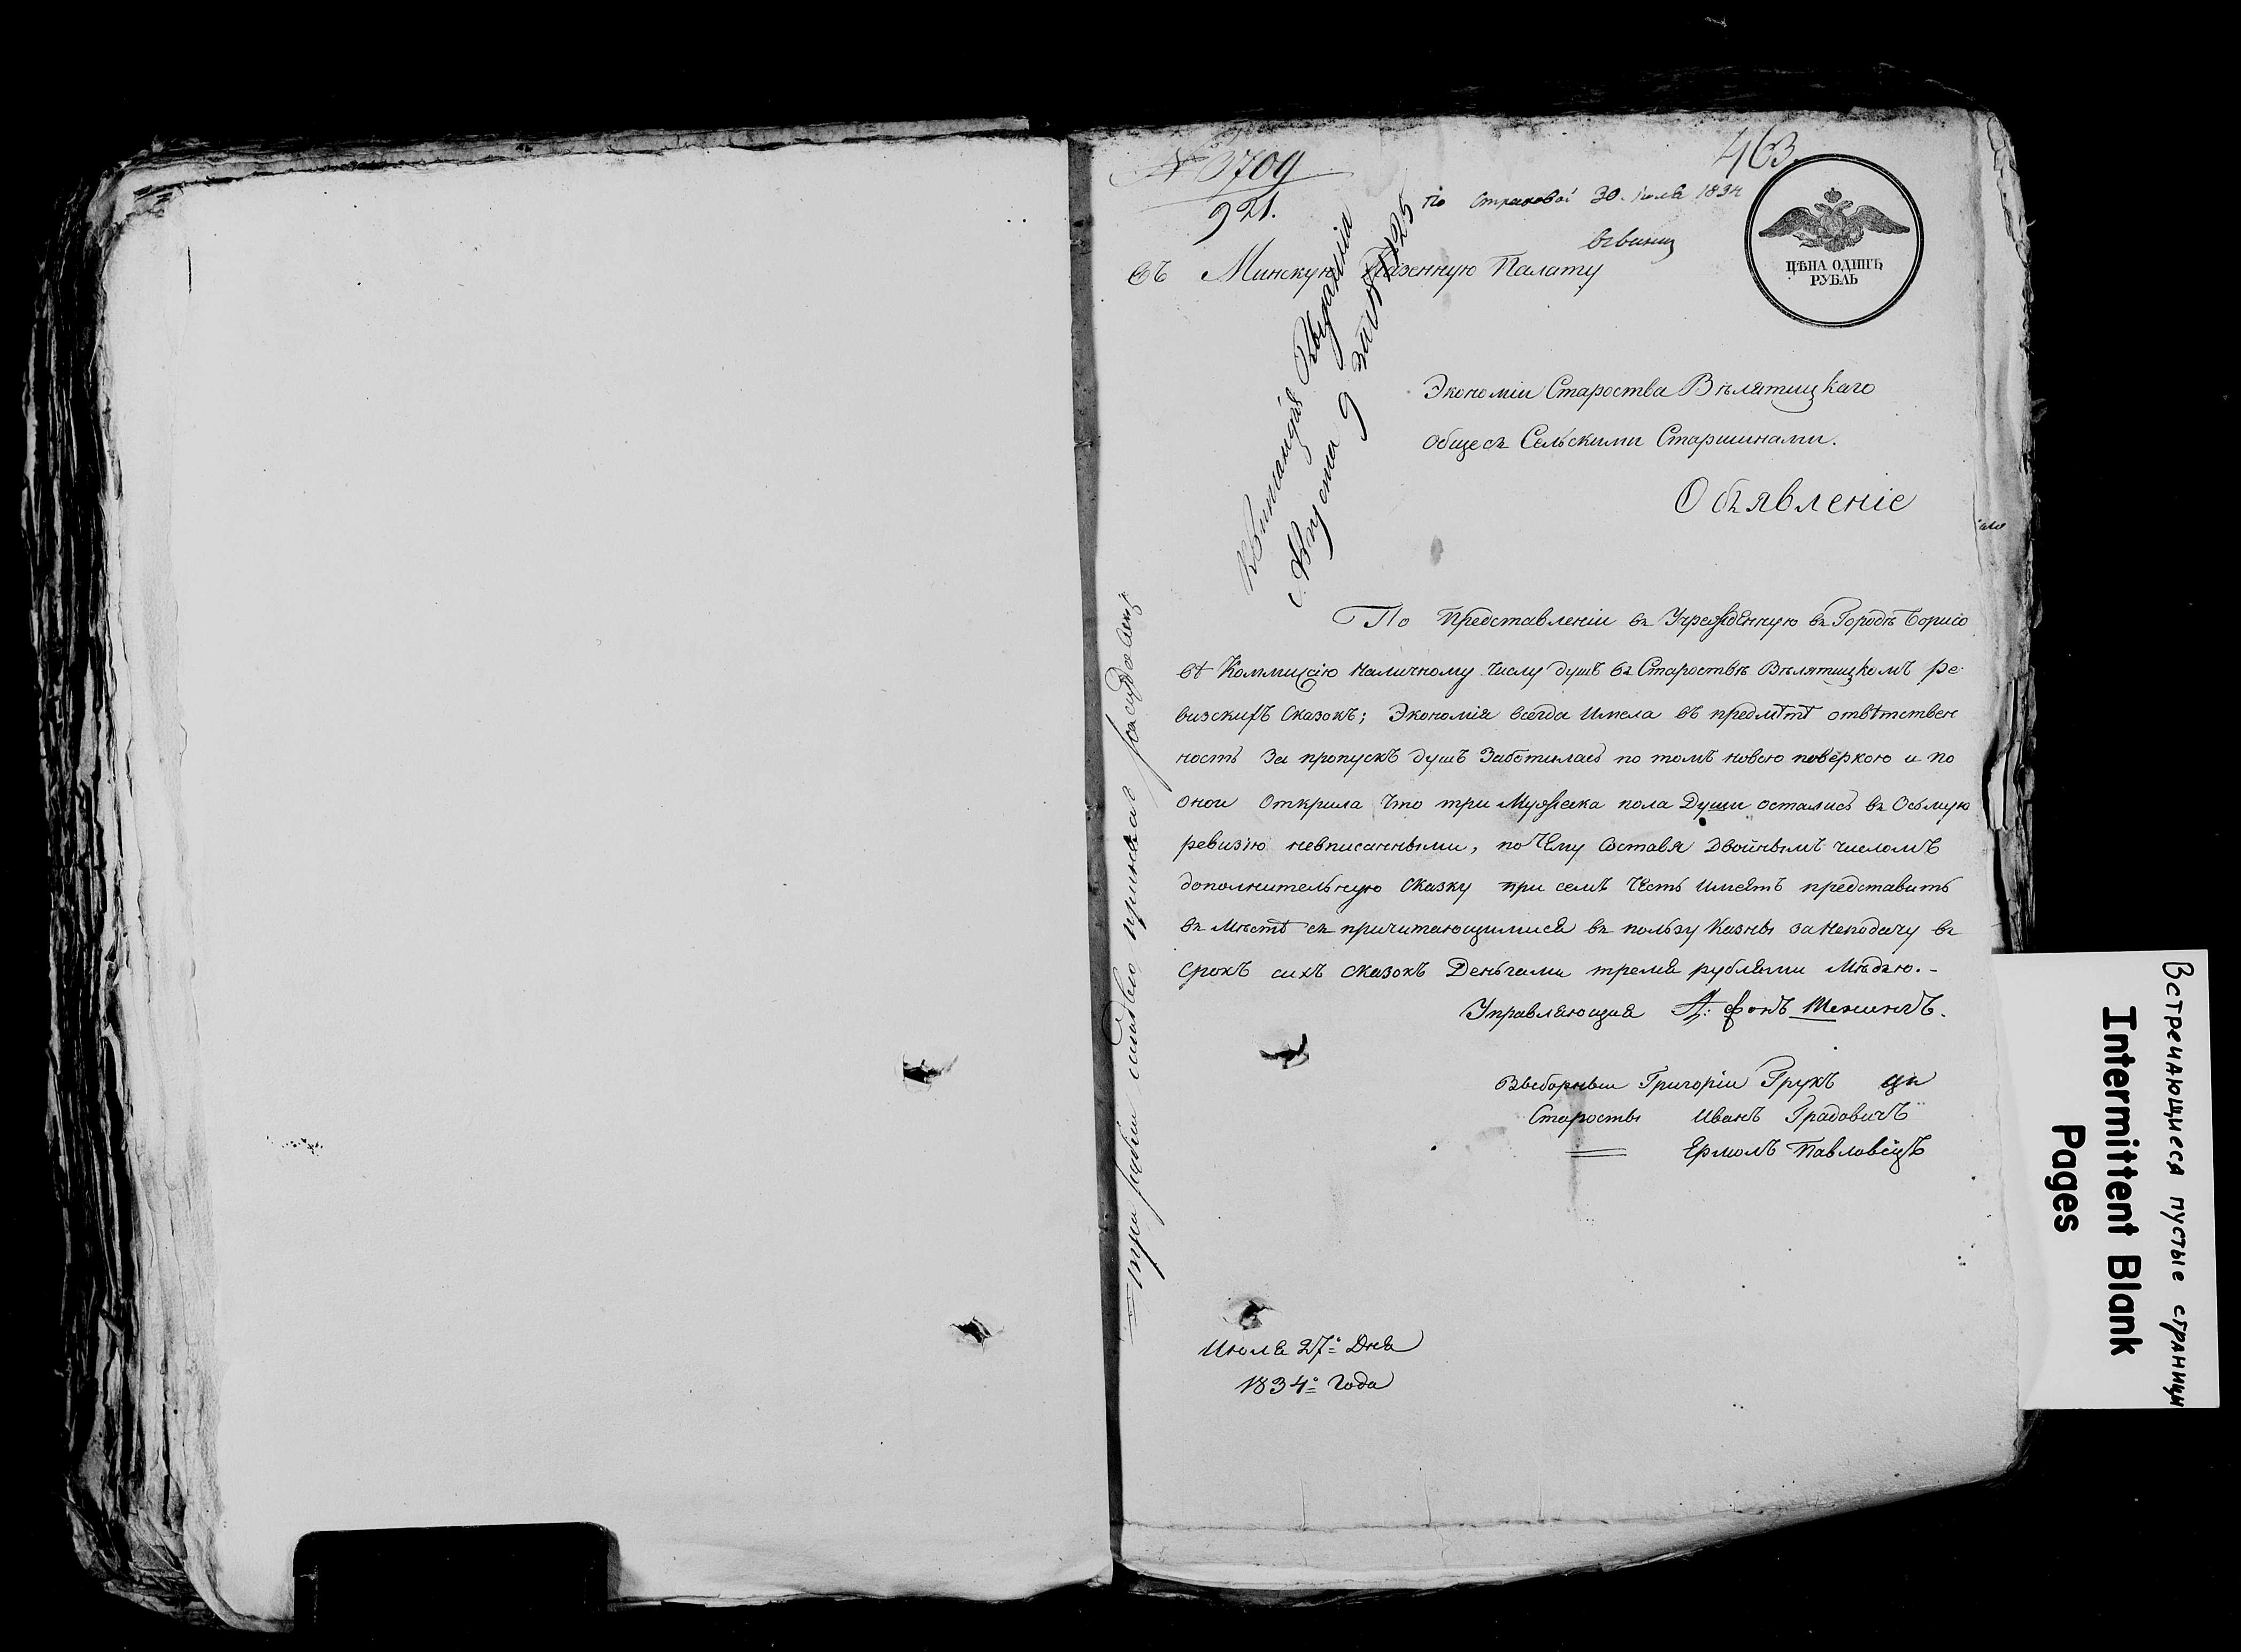 № 3709
921.
463.
По страховой 30. Іюля 1834
въ Минскую Казенную Палату
ЦѢНА ОДИНЪ
РУБЛЬ
Квитанція
Августа 9
Экономіи Староства Вѣлятицкаго
обще съ Сельскими Старшинами.
Объявленіе
По Представленіи въ Учрежденную въ Городѣ Борисо
вѣ Коммисію наличному числу душъ въ Староствѣ Вѣлятицкомъ ре-
визскихъ сказокъ; Экономія всегда имела въ предмѣтѣ отвѣтствен
ность за пропускъ душъ заботилась по томъ новою поверкою и по
оной открила что три Мужеска пола Души остались въ Осьмую
ревизію невписанными, по чему составя двойнымъ числомъ
дополнительную сказку при семъ честь имеетъ представить
въ мѣстѣ съ причитающимися въ пользу Казны за неподачу въ
срокъ сихъ сказокъ Деньгами тремя рублями Мѣдью.-
Управляющия А: фонъ Шенингъ.
Выборныи Григоріи Грукъ
Старосты Иванъ Градовичъ
Ермолъ Павловецъ
три рубли
Июля 27: Дня
1834: Года
Встречающиеся пустые страницы
Intermittent Blank
Pages